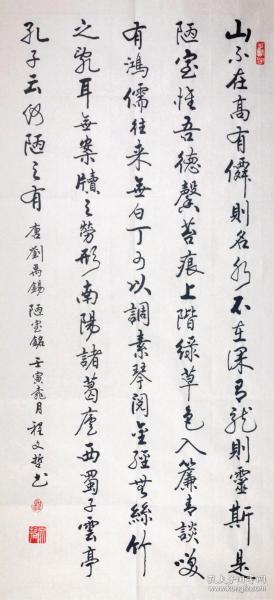 山不在高有僊則名水不在深有龍則靈斯是
陋室惟吾德馨苔痕上階綠草色入簾青談笑
有鴻儒往來無白丁可以調素琴閱金經無絲竹
之亂耳無案牘之勞形南陽諸葛廬西蜀子雲亭
孔子云何陋之有 唐劉禹錫陋室銘 壬寅 月程文哲书